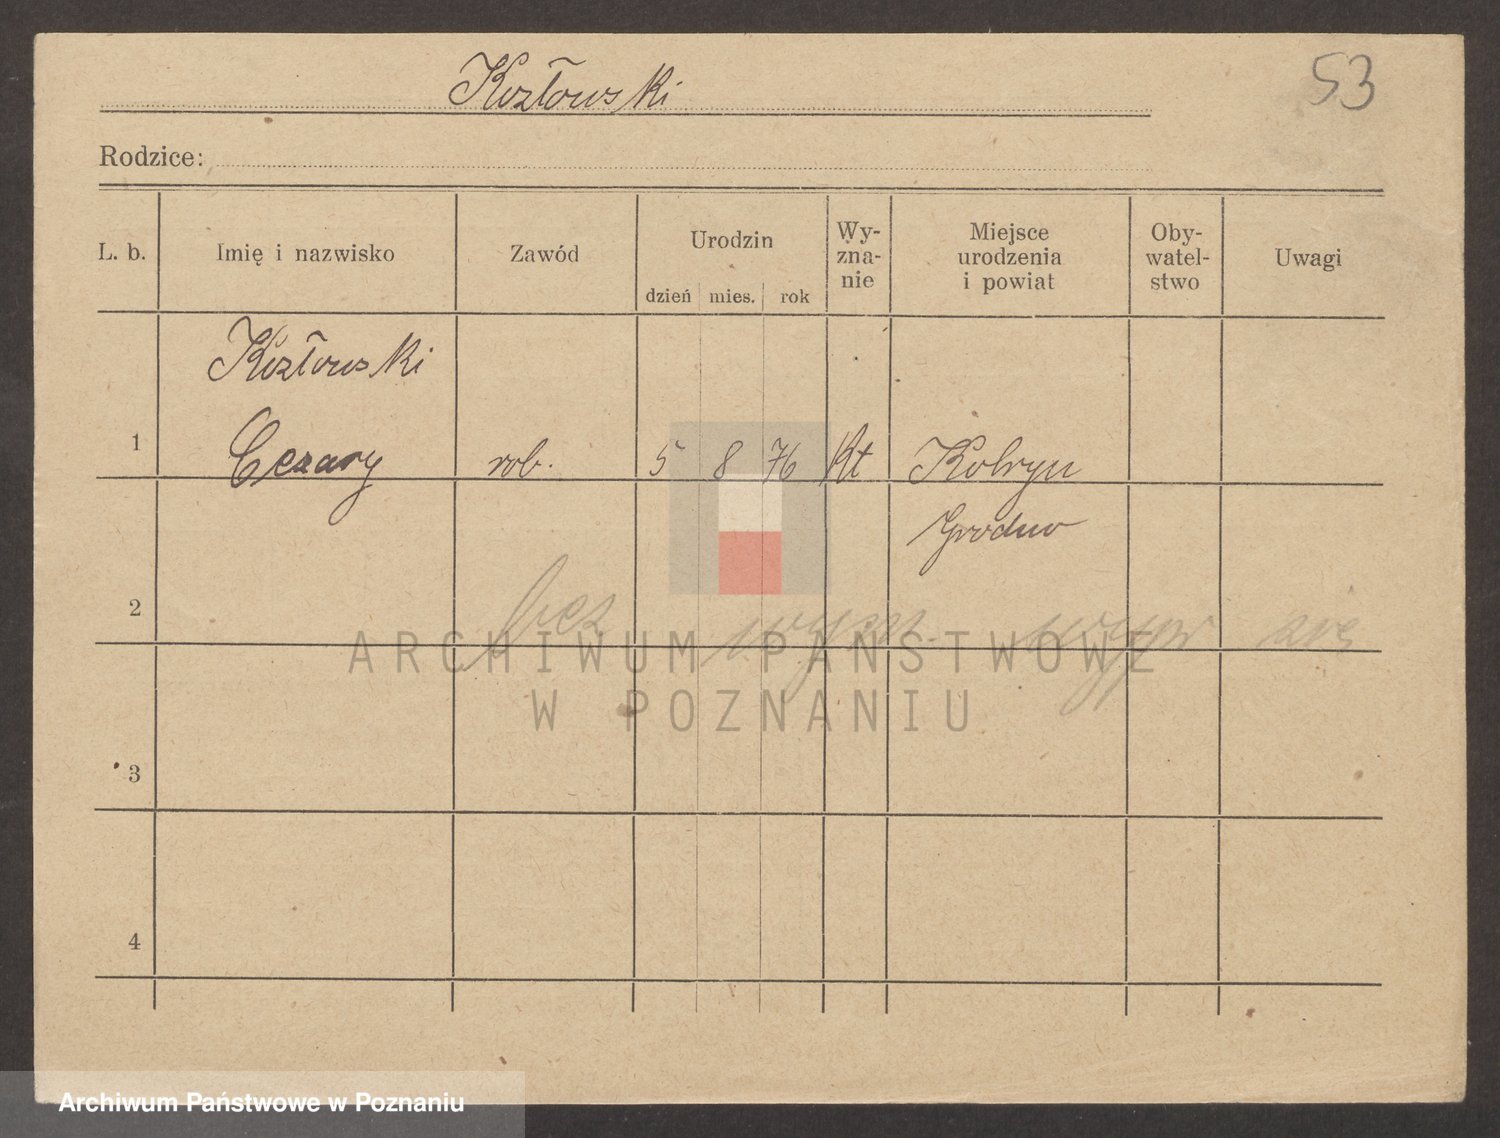 Kozłowski
53
Rodzice:
L. b.
Imię i nazwisko
Zawód
Urodzin
dzień mies. rok
Wy-
zna-
nie
Miejsce
urodzenia
i powiat
Oby-
watel-
stwo
Uwagi
Kozłowski
1 Cezary rob. 5 8 76 Kt Kobryn
Grodno
2
bez się
ARCHIWUM PAŃSTWOWE
W POZNANIU
3
4
Archiwum Państwowe w Poznaniu